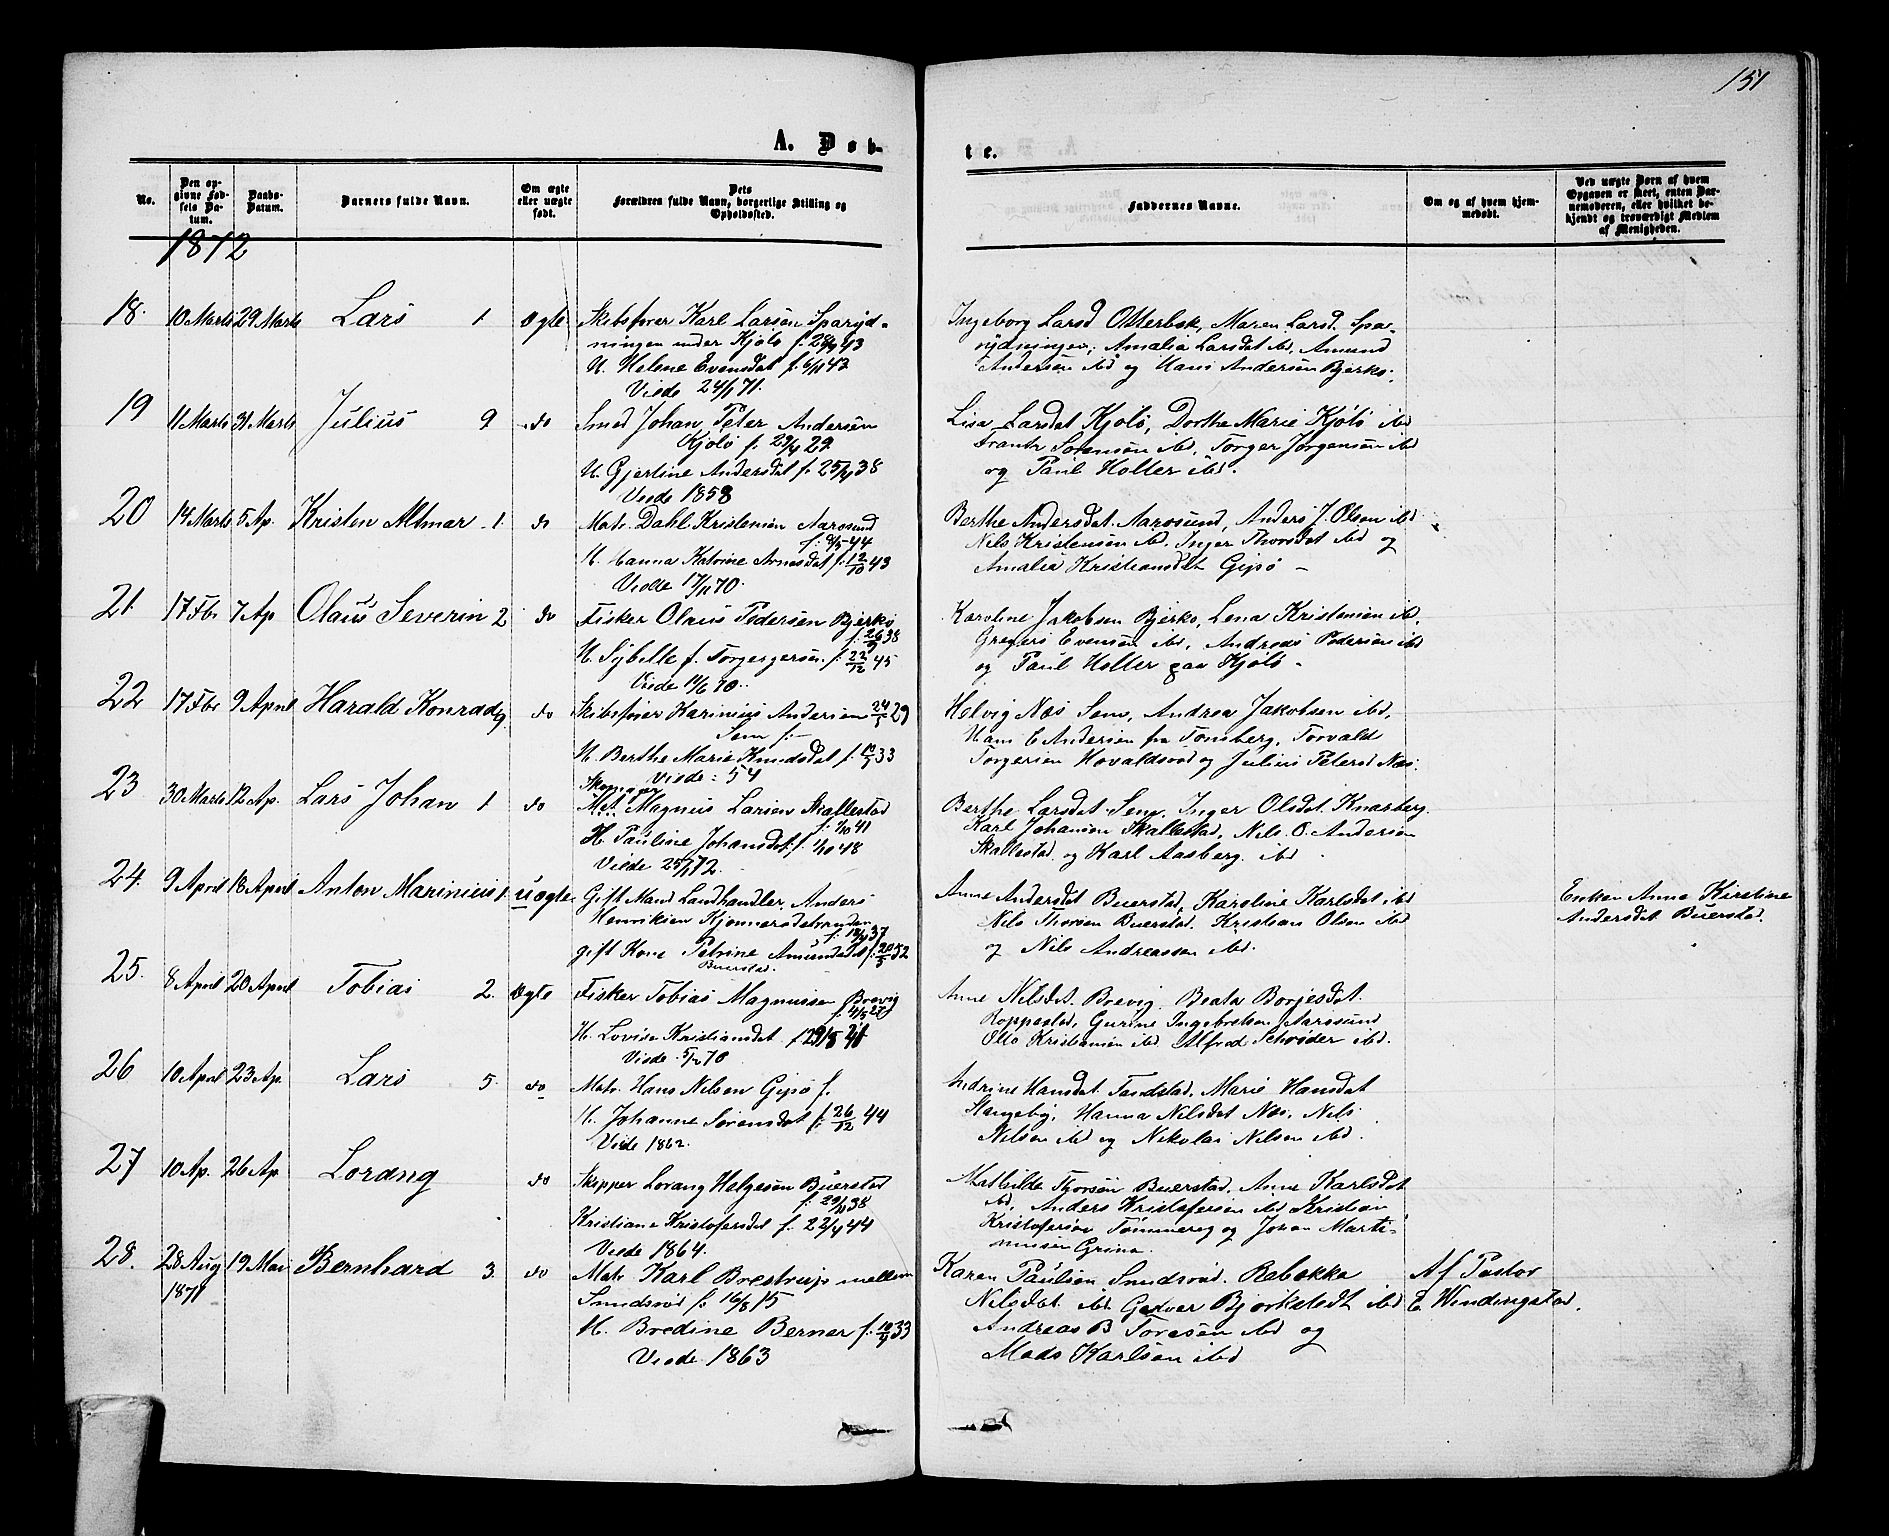 151
A. Døb-
te.
No.
Den op-
givne Fød-
sels Da-
tum.
Daabs-
Datum.
Barnets fulde Navn.
Om ægte
eller uægte
født.
Dets
Forældres fulde Navn, borgerlige Stilling og
Opholdssted.
Faddernes Navne.
Om og af hvem hjem-
medøbt.
Ved uægte Børn af hvem
Opgaven er skeet, enten Bar-
nemoderen, eller hvilket be-
kjendt og troværdigt Medlem
af Menigheden.
1872
18. 10 Marts 29 Marts Lars 1 Ægte
Skibsfører Karl Larsen Sparryd-
ningen under Kjølø f. 28/9 43
H. Helene Evensdat f. 6/11 42
Viede 24/1 71.
Ingeborg Larsd Otterbek, Maren Larsd. Spar-
rydningen, Amalia Larsdat ibd, Amund
Andersen ibd og Hans Andersen Bjerkø.
19 11 Marts 31 Marts Julius 9 do
Smed Johan Peter Andersen
Kjølø f. 29/4 29
H. Gjertine Andersdat f. 25/4 38
Viede 1858
Lisa Larsdat Kjølø, Dorthe Marie Kjølø ibd
Frantz Sørensen ibd, Torger Jørgensen ibd
og Paul Holter ibd.
20 14 Marts 5 Ap. Kristen Altmar 1. do
Matr. Dahl Kristensen Aarøsund
f. 9/5 44
H. Hanna Katrine Arnesdat f. 12/10 43
Viede 17/11 70
Berthe Andersdat Aarøsund, Anders J. Olsen ibd
Nils Kristensen ibd. Inger Thorsdat ibd og
Amalia Kristiansdt Gipø -
21. 17 Fbr 7 Ap Olaus Severin 2 do
Fisker Olaus Pedersen Bjerkø
f. 26/9 38
H. Sybille f. Torgersen f. 22/12 45
Viede 11/6 70.
Karoline Jakobsen Bjerkø, Lena Kristensen ibd,
Gregers Evensen ibd, Andreas Pedersen ibd
og Paul Holter paa Kjølø -
22 17 Fbr 9 April Harald Konrad 9 do
Skibsfører Karinius Andersen 24/5 29
Sem f.
H. Berthe Marie Knudsdat f. 10/9 33
Viede: 54
Helvig Næs Sem, Andrea Jakobsen ibd,
Hans E Andersen fra Tønsberg, Torvald
Torgersen Hovaldsrød og Julius Petersd Næs.
23 30 Marts 12 Ap. Lars Johan 1 do
Skomager
Mat. Magnus Larsen Skallestad
f. 1/10 41
H. Pauline Johansdat f. 1/10 48
Viede 25/1 72.
Berthe Larsdat Sem, Inger Olsdat Knarberg
Karl Johansen Skallestad, Nils O. Andersen
Skallestad og Karl Aasberg ibd
24. 9 April 13 April Anton Marinius 1. uægte
Gift Mand Landhandler Anders
Henriksen Kjønnerødstranden
f. 18/11 37
gift Kone Petrine Amundsdat f. 20/5 52
Buerstad.
Anne Andersdat Buerstad, Karoline Karlsdat ibd
Nils Thorsen Buerstad. Kristian Olsen ibd
og Nils Andreassen ibd.
Enken Anne Kirstine
Andersdat Buerstad.
25. 8 April 20 April Tobias 2. Ægte
Fisker Tobias Magnussen Brevig
f. 4/5 27
H. Lovise Kristiansdat f 29/8 41
Viede 5/2 70
Anne Nilsdat Brevig Beata Børjesdat
Roppestad, Gurine Ingebretsen Aarøsund
Otto Kristiansen ibd Alfred Schrøder ibd.
26 10 April 23 Ap. Lars 5. do
Matr. Hans Nilsen Gipø f.
H. Johanne Sørensdat f. 26/12 44
Viede 1862.
Andrine Hansdat Tandstad, Marie Hansdat
Stangeby, Hanna Nilsdat Næs, Nils
Nilsen ibd og Nikolai Nilsen ibd.
27 10 Ap. 26 Ap Lorang do
Skipper Lorang Helgesen Buerstad
f. 29/11 38
Kristiane Kristofersdat f. 22/4 44
Viede 1864.
Mathilde Thorsen Buerstad, Anne Karlsdat
ibd, Anders Kristofersen ibd Kristian
Kristofersen Tømmereg og Johan Marti-
niusen Grina.
28. 28 Aug
1871 19 Mai Bernhard 3. do
Matr Karl Brestrup mellem
Smidsrød f. 16/8 15
H. Bredine Berner f. 10/9 33
Viede 1863
Karen Paulsen Smidsrød. Rebekka
Nilsdat ibd Gedver Bjørkstedt ibd
Andreas B Toresen ibd og
Mads Karlsen ibd
Af Pastor
E Windingstad.